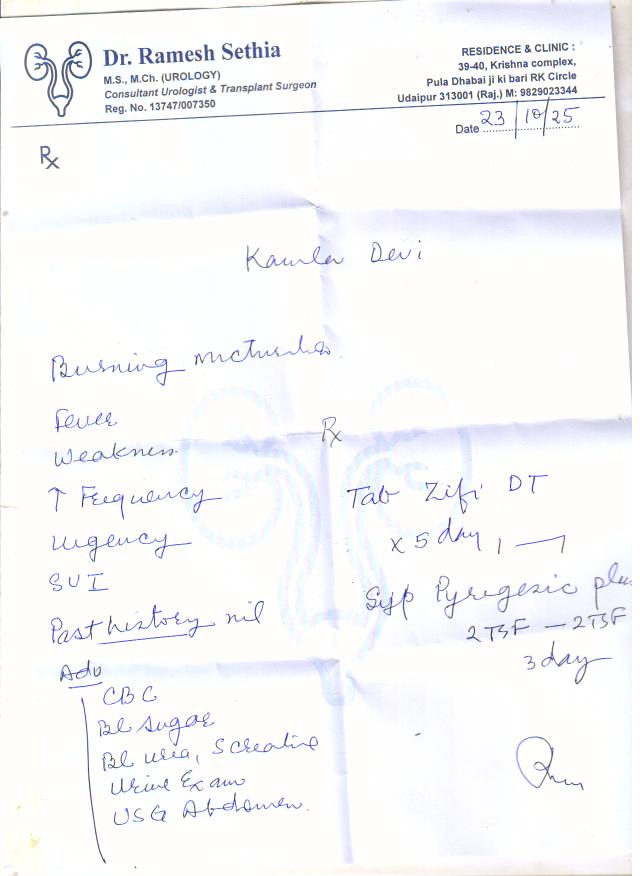 Dr. Ramesh Sethia
M.S., M.Ch. (UROLOGY)
Consultant Urologist & Transplant Surgeon
Reg. No. 13747/007350
RESIDENCE & CLINIC :
39-40, Krishna complex,
Pula Dhabai ji ki bari RK Circle
Udaipur 313001 (Raj.) M: 9829023344
Date 23/10/25
Rx
Kamla Devi
Burning
Fever
Weakness
↑ Frequency
Urgency
SUI
Past history nil
Adv
CBC
Bl sugar
Bl urea, S creatine
Urine Exam
USG Abdomen.
Rx
Tab Zifi DT
x 5 day, 1 — 1
Syp Pyregesic plus
2TSF — 2TSF
3 day